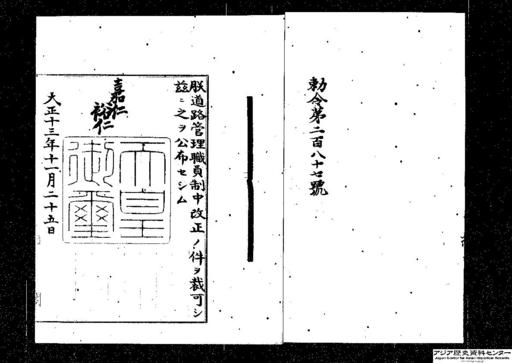 勅令第二百八十七號
朕道路管理職員制中改正ノ件ヲ裁可シ
茲ニ之ヲ公布セシム
嘉仁
裕仁
天皇御璽
大正十三年十一月二十五日
アジア歴史資料センター
Japan Center for Asian Historical Records